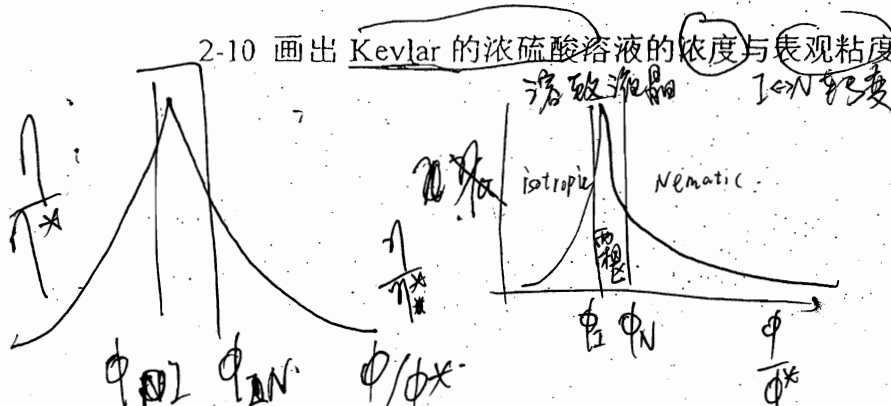 2-10 画出 Kevlar 的浓硫酸溶液的浓度与表观粘度
溶致液晶 I↔N 转变
η/η*
isotropic Nematic
两相区
η/η*
ϕI ϕN ϕ/ϕ*
ϕI ϕN ϕ/ϕ*